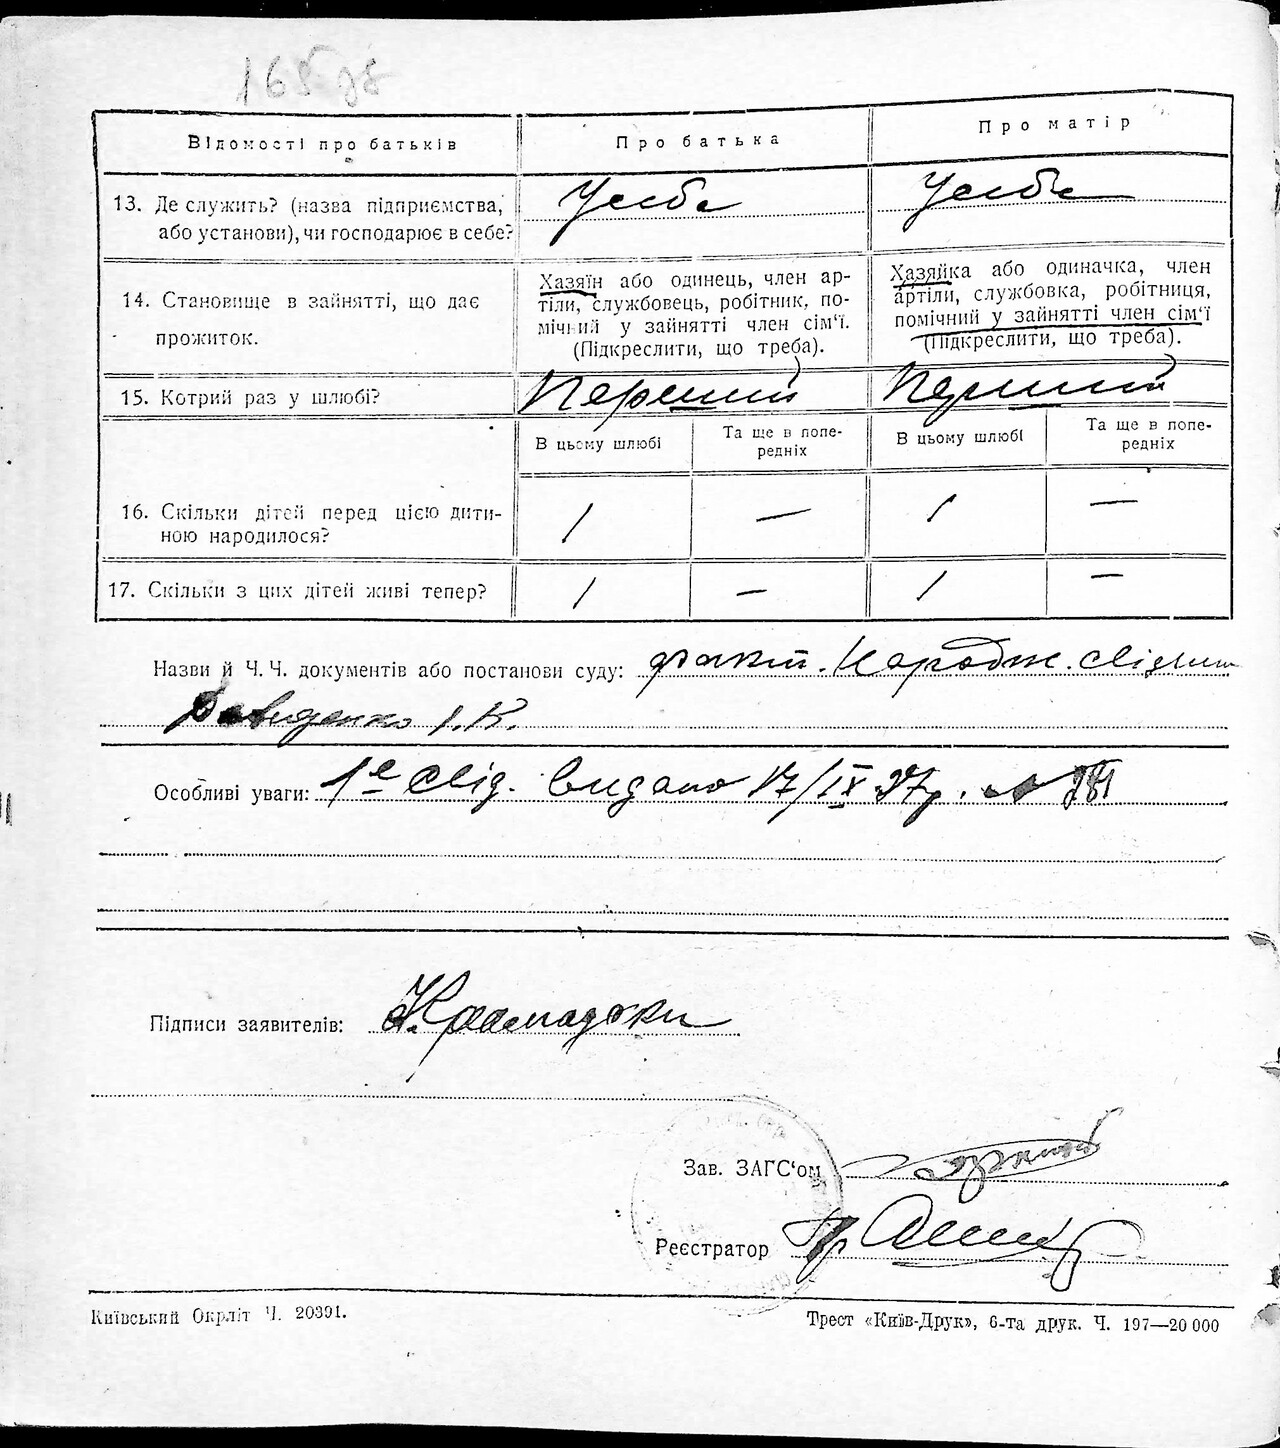 Відомості про батьків
Про батька
Про матір
13. Де служить? (назва підприємства,
або установи), чи господарює в себе?
У себе
У себе
14. Становище в зайнятті, що дає
прожиток.
Хазяїн або одинець, член ар-
тіли, службовець, робітник, по-
мічний у зайнятті член сім'ї.
(Підкреслити, що треба).
Хазяйка або одиначка, член
артіли, службовка, робітниця,
помічний у зайнятті член сім'ї
(Підкреслити, що треба).
15. Котрий раз у шлюбі?
Перший
Перший
В цьому шлюбі
Та ще в попе-
редніх
В цьому шлюбі
Та ще в попе-
редніх
16. Скільки дітей перед цією дити-
ною народилося?
1
—
1
—
17. Скільки з цих дітей живі тепер?
1
—
1
—
Назви й Ч. Ч. документів або постанови суду: факт. Народж.
Давиденко І. К.
Особливі уваги: 1е свід. видано 17/IX 27р. №
Підписи заявителів:
Зав. ЗАГС'ом
Реєстратор
Київський Окрліт Ч. 20391.
Трест «Київ-Друк», 6-та друк. Ч. 197—20 000